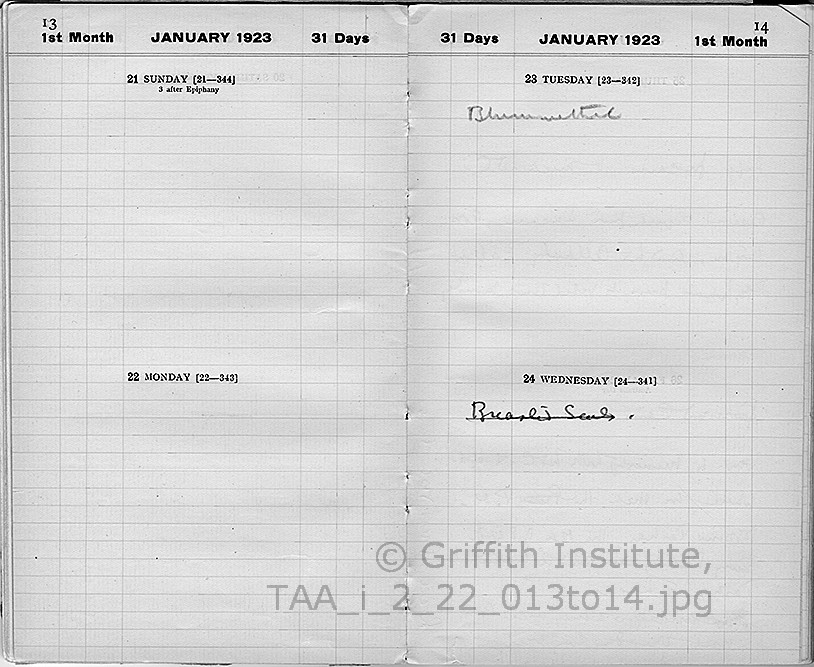 13
1st Month JANUARY 1923 31 Days
21 SUNDAY [21—344]
3 after Epiphany
22 MONDAY [22—343]
14
31 Days JANUARY 1923 1st Month
23 TUESDAY [23—342]
Blumenthal
24 WEDNESDAY [24—341]
Seals.
© Griffith Institute,
TAA_i_2_22_013to14.jpg